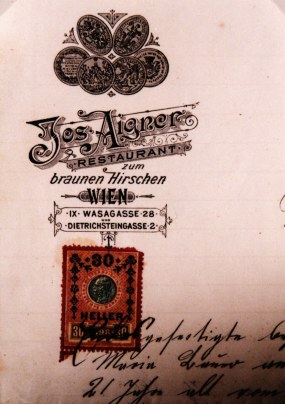 Jos. Aigner
RESTAURANT
zum
braunen Hirschen
WIEN
·IX· WASAGASSE·28·
UND
DIETRICHSTEINGASSE·2·
30
HELLER
30
gefertigte
Maria Bauer
21 Jahre alt